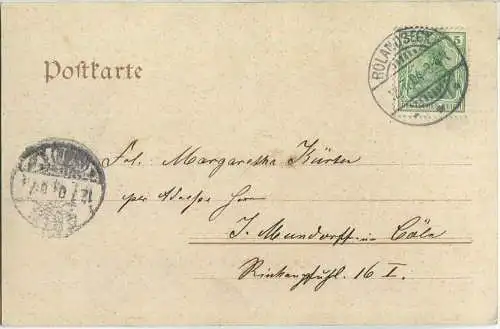 Postkarte
ROLANDSECK
5
Frl. Margaretha Kürten
per Adresse Herrn
J. Mundorff in Cöln
Rinkenpfuhl. 16 I.